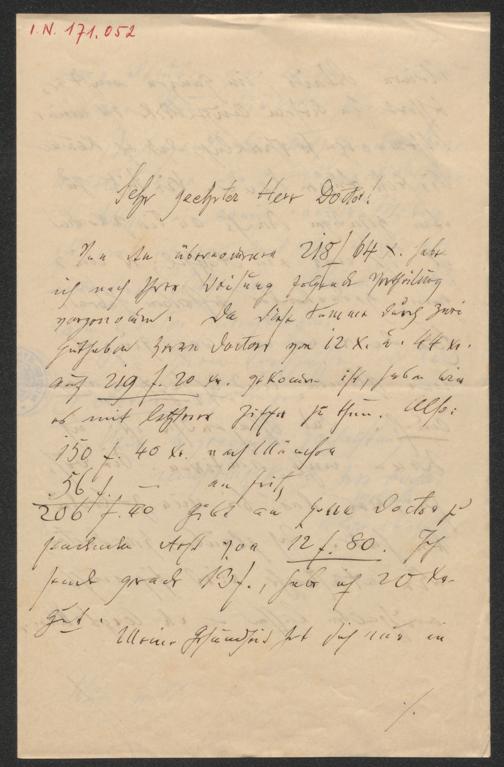 I.N. 171.052
Sehr geehrter Herr Doctor!
Von den übernommenen 218 f 64 x. habe
ich nach Ihrer Weisung folgende Vertheilung
vorgenommen. Da diese Summe durch zwei
Guthaben Herrn Doctors von 12 x. u. 44 xr.
auf 219 f. 20 xr. gekommen ist, haben wir
es mit letzterer Ziffer zu thun. Also:
150 f. 40 xr. nach München
56 f. — an Fritz
206 f. 40 gibt an Herrn Doctor zu
sendenden Rest von 12 f. 80. Ich
sende gerade 13 f., habe also 20 xr.
gut.
Meine Gesundheit hat sich nun in
./.